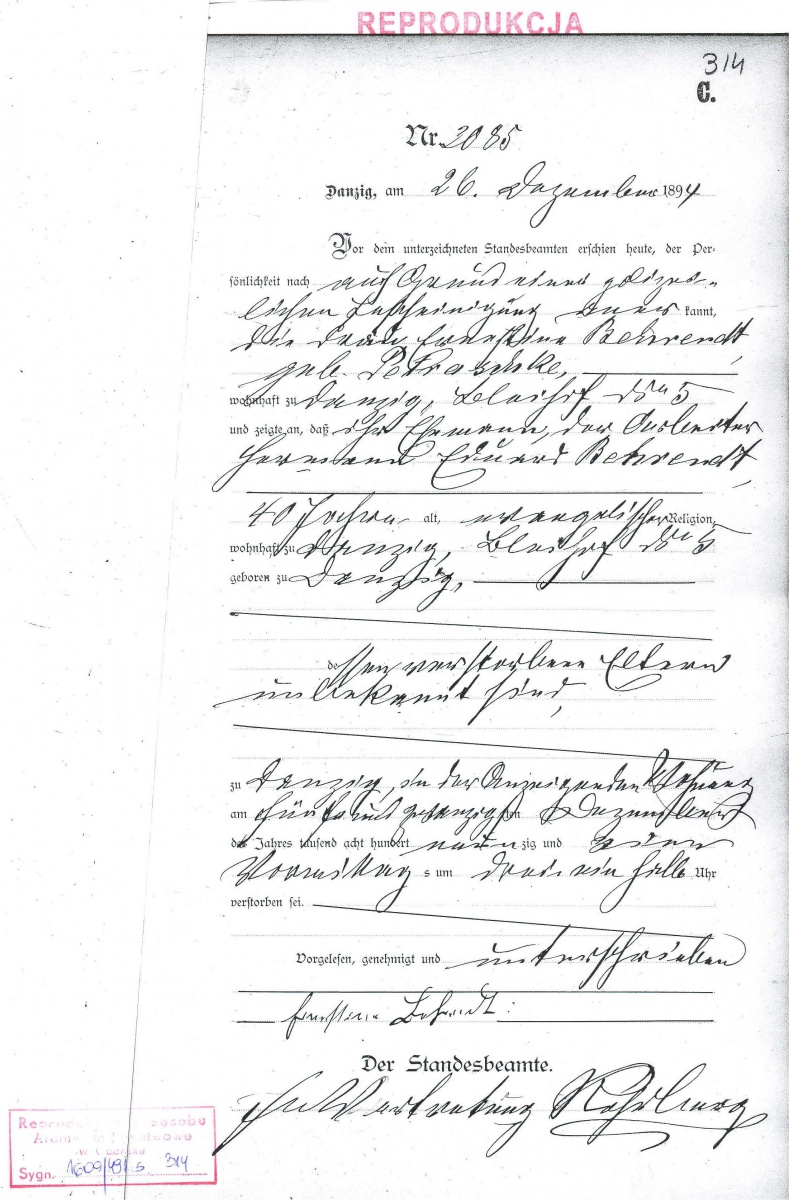 REPRODUKCJA
314
C.
Nr. 2085
Danzig, am 26. Dezember 1894
Vor dem unterzeichneten Standesbeamten erschien heute, der Per-
sönlichkeit nach auf Grund einer polizei-
lichen Bescheinigung aner kannt,
die Frau Ernestine Behrendt,
geb. Petraschke,
wohnhaft zu Danzig, Bleihof No 5
und zeigte an, daß ihr Ehemann, der Arbeiter
Hermann Eduard Behrendt,
40 Jahre alt, evangelischer Religion,
wohnhaft zu Danzig, Bleihof No 5
geboren zu Danzig,
dessen verstorbene Eltern
unbekannt sind,
zu Danzig, in der Anzeigenden Wohnung
am fünfundzwanzigsten Dezember
des Jahres tausend acht hundert neunzig und vier
Vormittags um drei ein halb Uhr
verstorben sei.
Vorgelesen, genehmigt und unterschrieben
Ernstine Behrendt.
Der Standesbeamte.
In Vertretung
w Gdańsku
Sygn. 1609/491 s 314